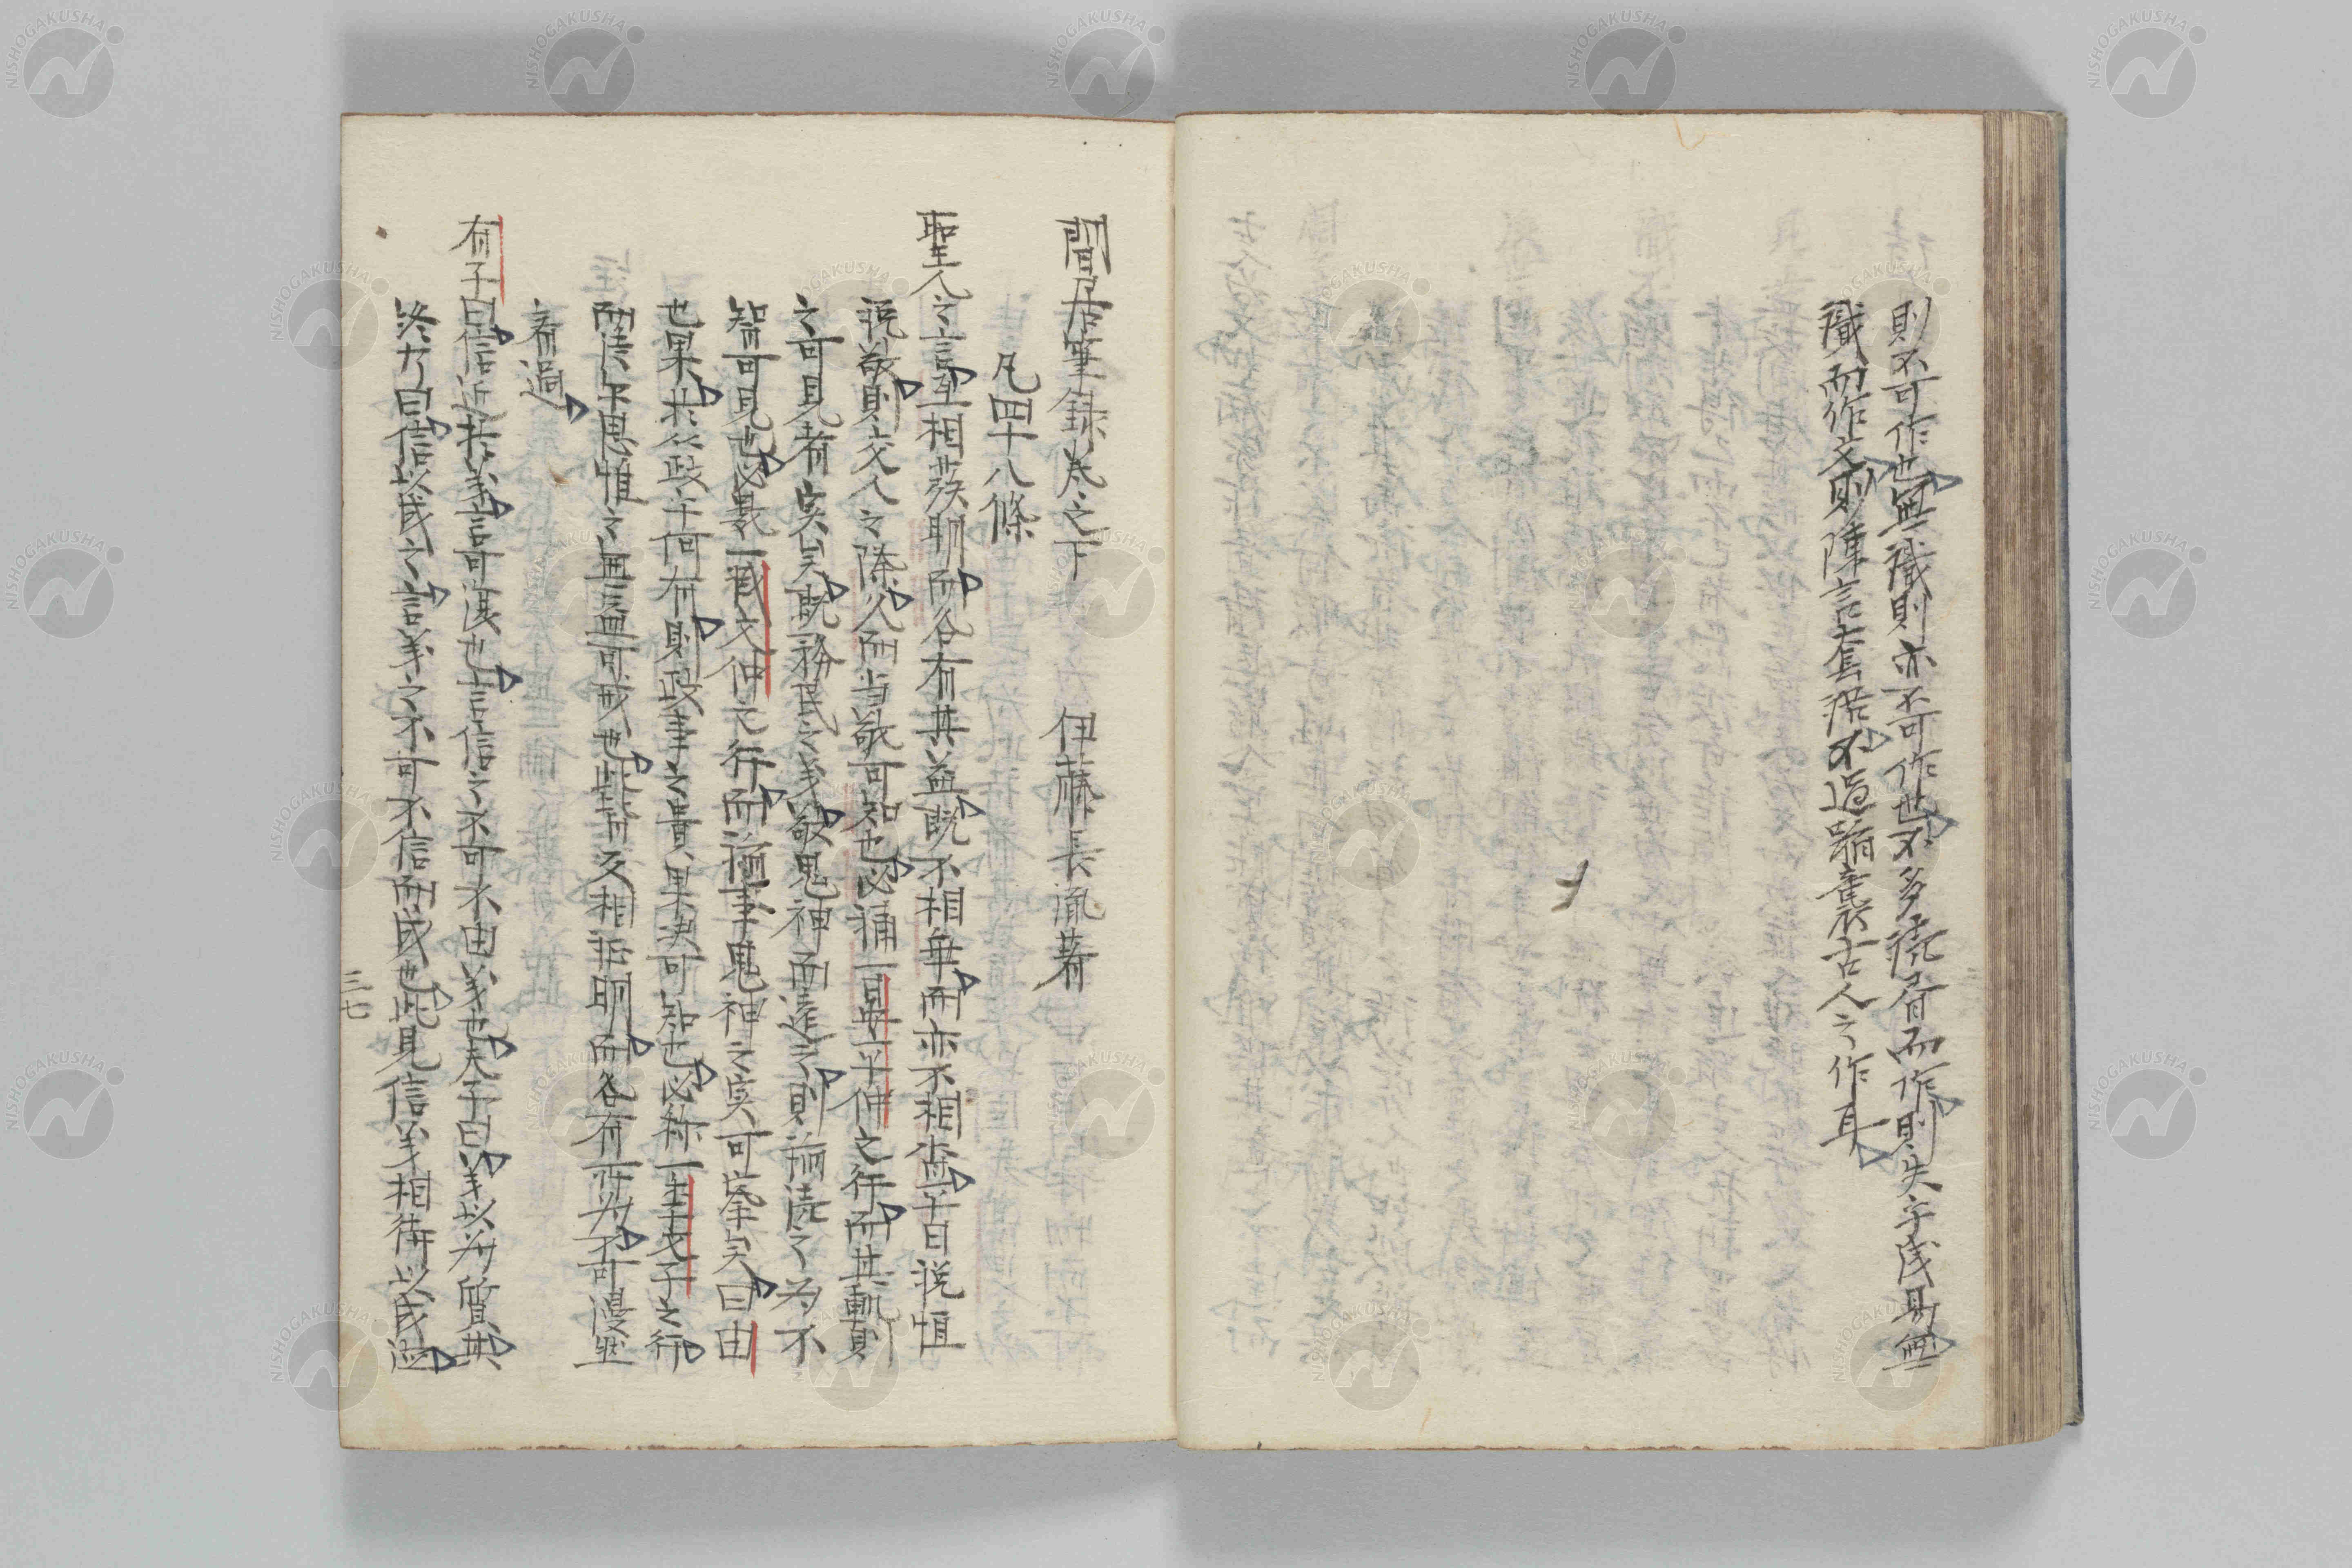 則不可作也無識則亦不可作也不多讀書而作則失字淺易無
識而作文則陳言套語不過竊裏古人之作耳
閒居筆録卷之下 伊藤長胤著
凡四十八條
聖人之言互相發明而各有其益既不相牟而亦不相盭昔日説恒
説敬則交人之際久而当敬可知也必稱晏平仲之行而其軌則
之可見者实矣既務民之义敬鬼神而遠之則諂瀆之为不
智可見也必裁臧文仲之行而諂事鬼神之实可掌矣曰由
也果於从政乎何有則政事之貴果决可知也必称季文子之行
而徒乍思惟之無益可戒也此皆及相証明而各有所为不可漫然
看過
有子曰信近於義言可復也言信之不可不由义也夫子曰义以为質其
終乃曰信以成之言义之不可不信而成也此見信义相待以成
三七
NISHOGAKUSHA